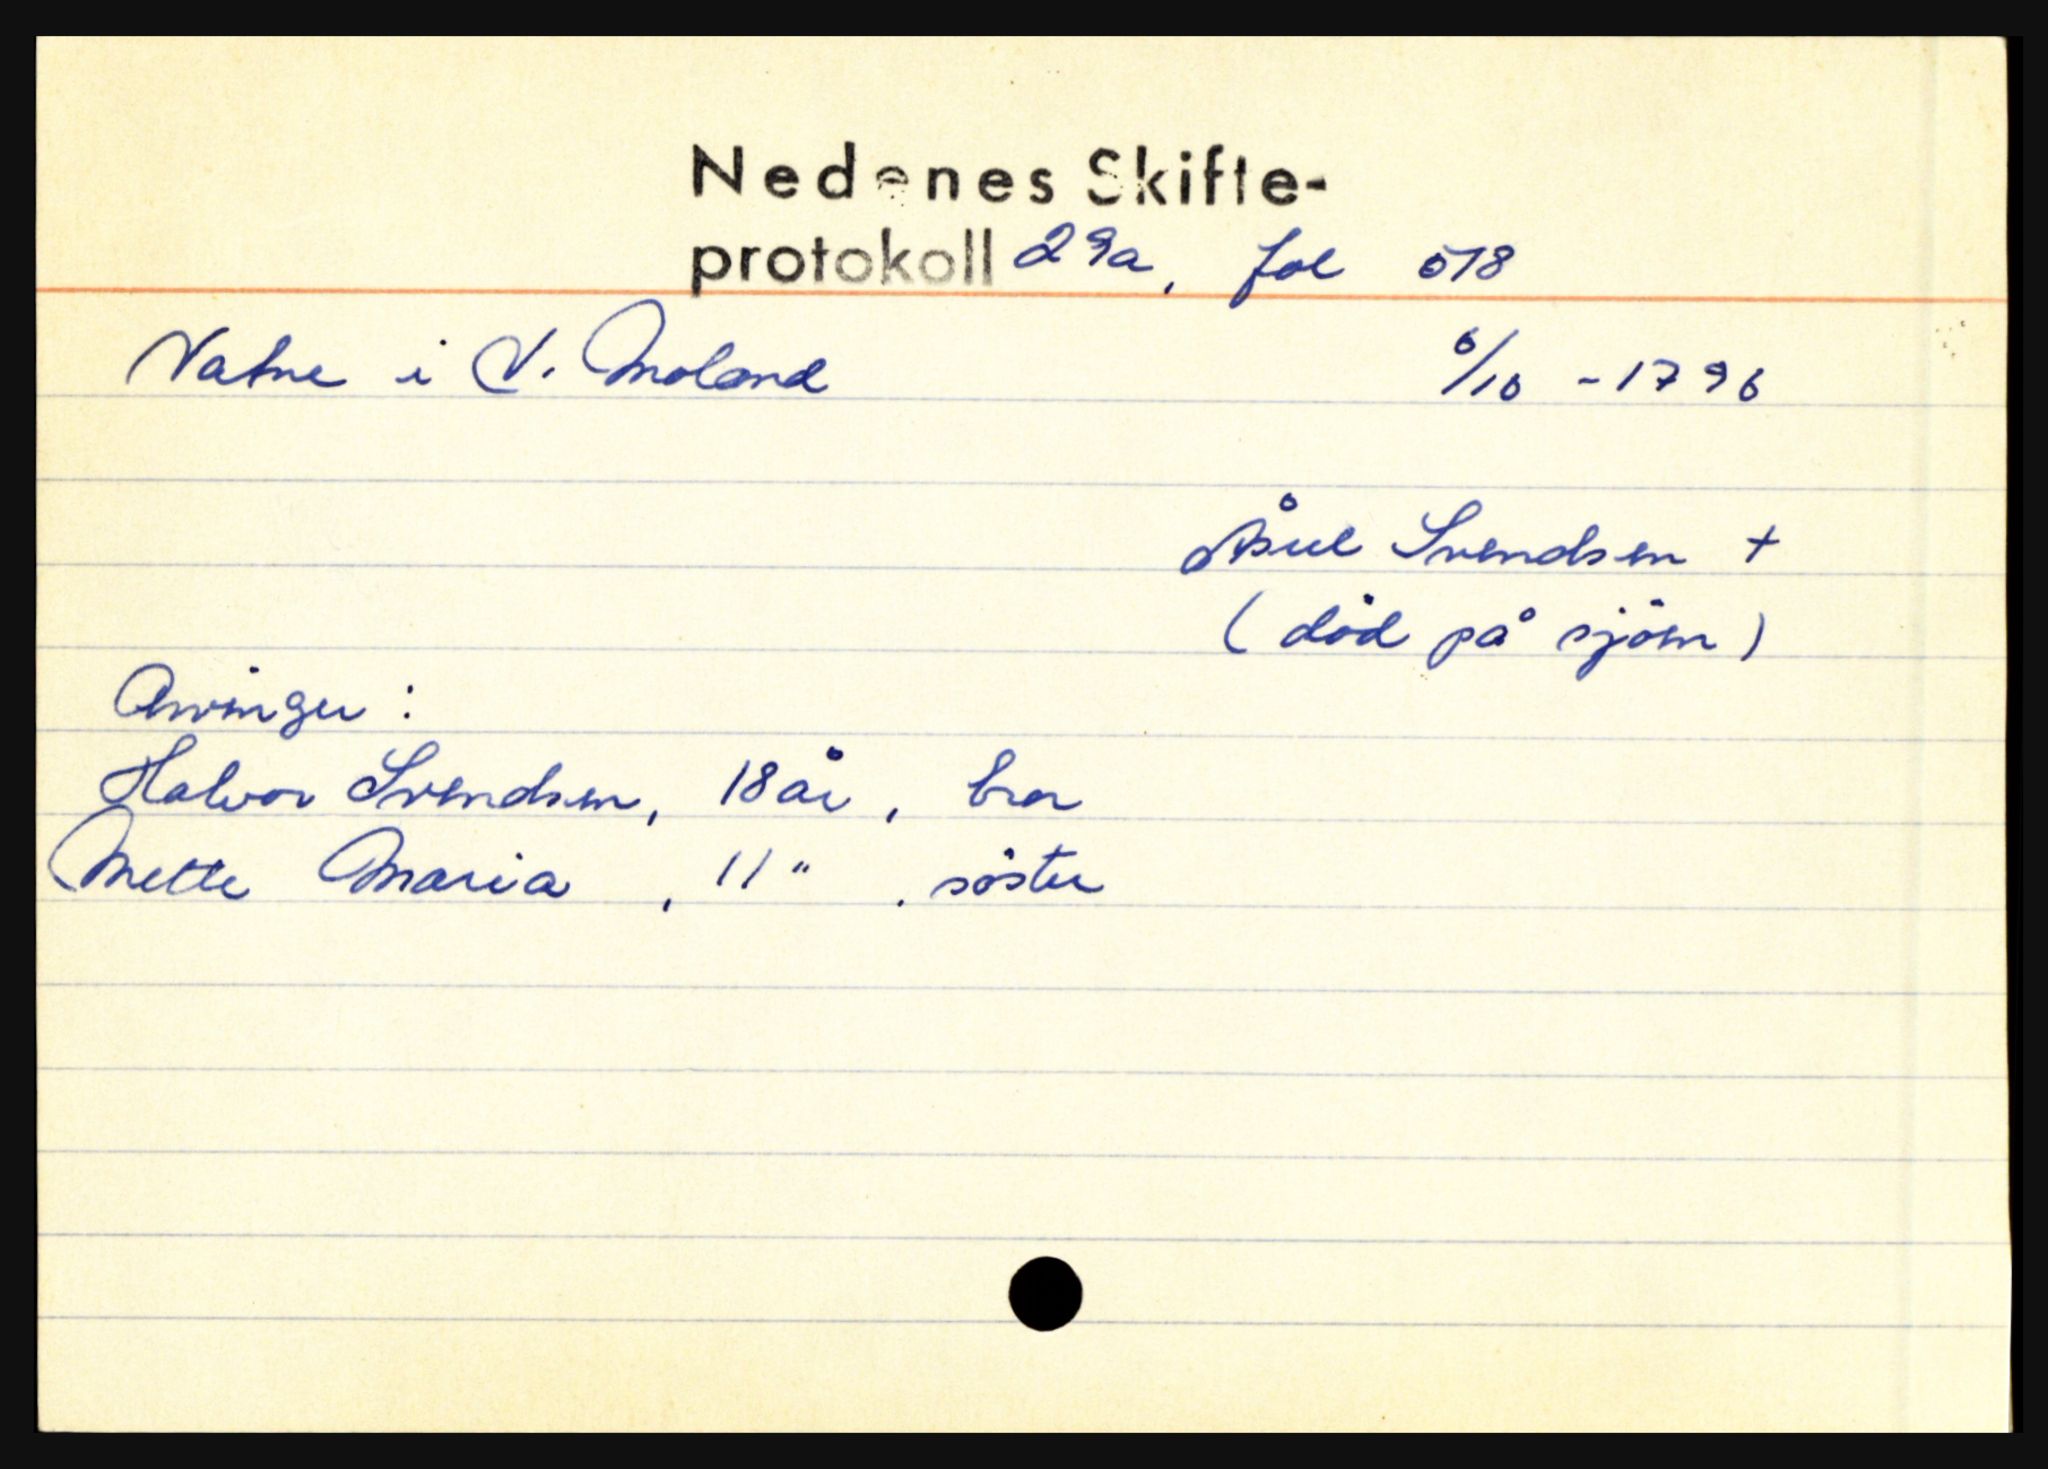 Nedenes Skifte-
protokoll 29a, fol 578
Vatne i V. Moland 6/10 - 1796
Åsul Svendsen +
(död på sjöen)
Arvinger :
Halvor Svendsen, 18 år, bror
Mette Maria , 11 " , söster